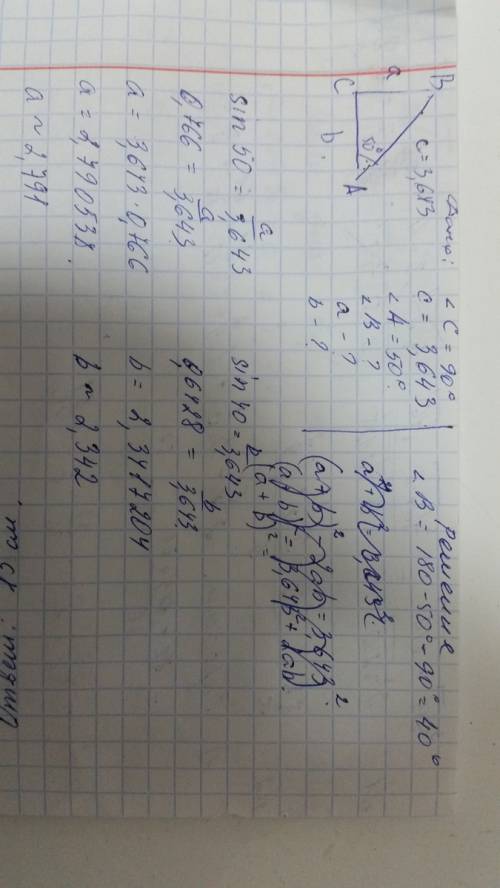 Дано:
∠C = 90°
c = 3,643
∠A = 50°
∠B - ?
a - ?
b - ?
B
a
c = 3,643
50°
C
b
A
Решение
∠B = 180 - 50° - 90° = 40°
a² + b² = 3,643²
(a + b)² - 2ab = 3,643²
(a + b)² = 3,643² + 2ab
(a + b)² =
sin 50 = a/3,643
0,766 = a/3,643
a = 3,643 · 0,766
a = 2,790538
a ≈ 2,791
sin 40 = b/3,643
0,6428 = b/3,643
b = 2,3417204
b ≈ 2,342
Ответ: